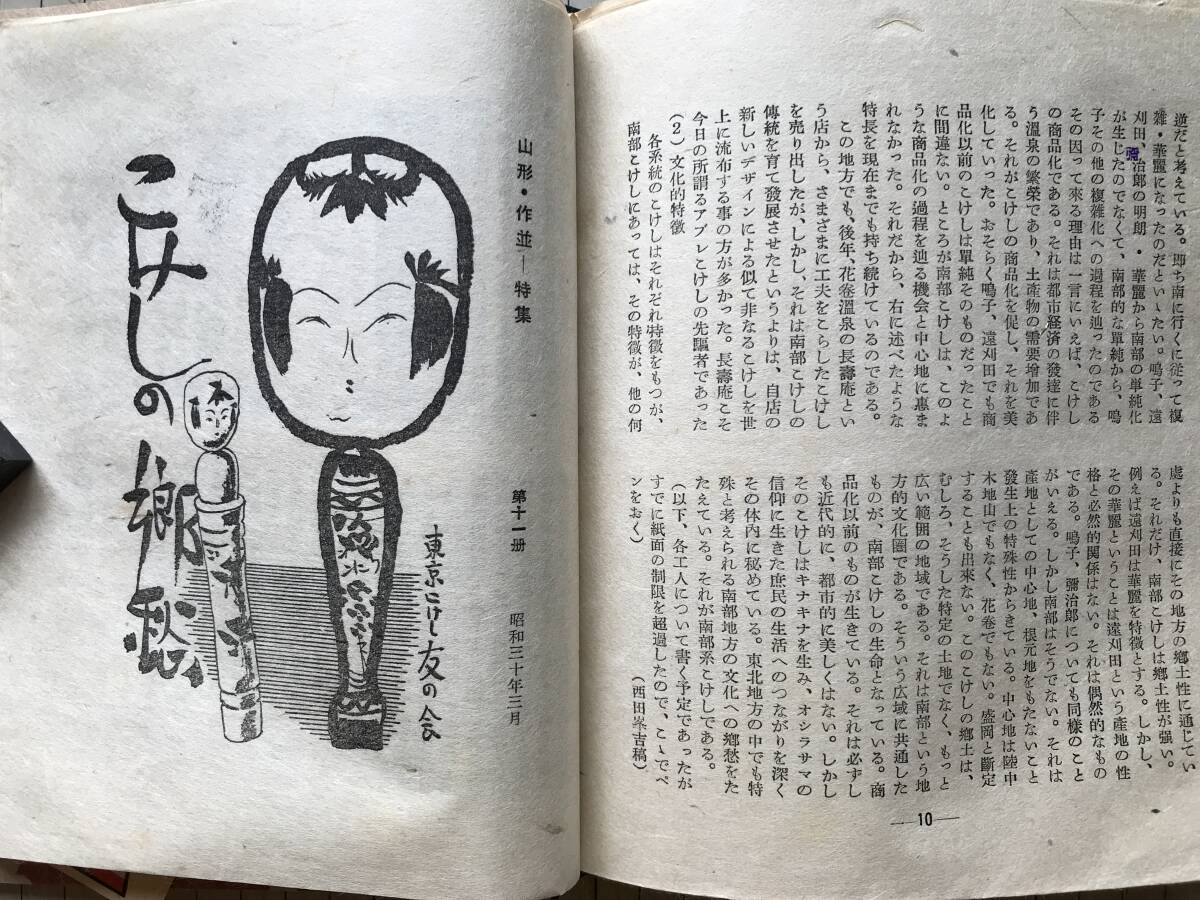 逆だと考えている。即ち南に行くに従って複
雜・華麗になったのだといゝたい。鳴子、遠
刈田、彌治郎の明朗・華麗から南部の単純化
が生じたのでなくて、南部的な單純から、鳴
子その他の複雜化への過程を辿ったのである
その因って來る理由は一言にいえば、こけし
の商品化である。それは都市経済の發達に伴
う溫泉の繁栄であり、土産物の需要増加であ
る。それがこけしの商品化を促し、それを美
化していった。おそらく鳴子、遠刈田でも商
品化以前のこけしは單純そのものだったこと
に間違ない。ところが南部こけしは、このよ
うな商品化の過程を辿る機会と中心地に惠ま
れなかった。それだから、右に述べたような
特長を現在までも持ち続けているのである。
この地方でも、後年、花卷溫泉の長壽庵とい
う店から、さまざまに工夫をこらしたこけし
を売り出したが、しかし、それは南部こけしの
傳統を育て發展させたというよりは、自店の
新しいデザインによる似て非なるこけしを世
上に流布する事の方が多かった。長壽庵こそ
今日の所謂アプレこけしの先驅者であった
(2)文化的特徴
各系統のこけしはそれぞれ特徴をもつが、
南部こけしにあっては、その特徴が、他の何
處よりも直接にその地方の鄕土性に通じてい
る。それだけ、南部こけしは鄕土性が強い。
例えば遠刈田は華麗を特徴とする。しかし、
その華麗ということは遠刈田という産地の性
格と必然的関係はない。それは偶然的なもの
である。鳴子、彌治郎についても同様のこと
がいえる。しかし南部はそうでない。それは
產地としての中心地、根元地をもたないこと
發生上の特殊性からきている。中心地は陸中
木地山でもなく、花卷でもない。盛岡と斷定
することも出來ない。このこけしの鄕土は、
むしろ、そうした特定の土地でなく、もっと
広い範囲の地域である。それは南部という地
方的文化圏である。そういう広域に共通した
ものが、南部こけしの生命となっている。商
品化以前のものが生きている。それは必ずし
も近代的に、都市的に美しくはない。しかし
そのこけしはキナキナを生み、オシラサマの
信仰に生きた庶民の生活へのつながりを深く
その体内に秘めている。東北地方の中でも特
殊と考えられる南部地方の文化への鄕愁をた
たえている。それが南部系こけしである。
(以下、各工人について書く予定であったが
すでに紙面の制限を超過したので、こゝでペ
ンをおく)
(西田峯吉稿)
—10—
山形・作並—特集
第十一册
昭和三十年三月
東京こけし友の会
こけしの郷愁